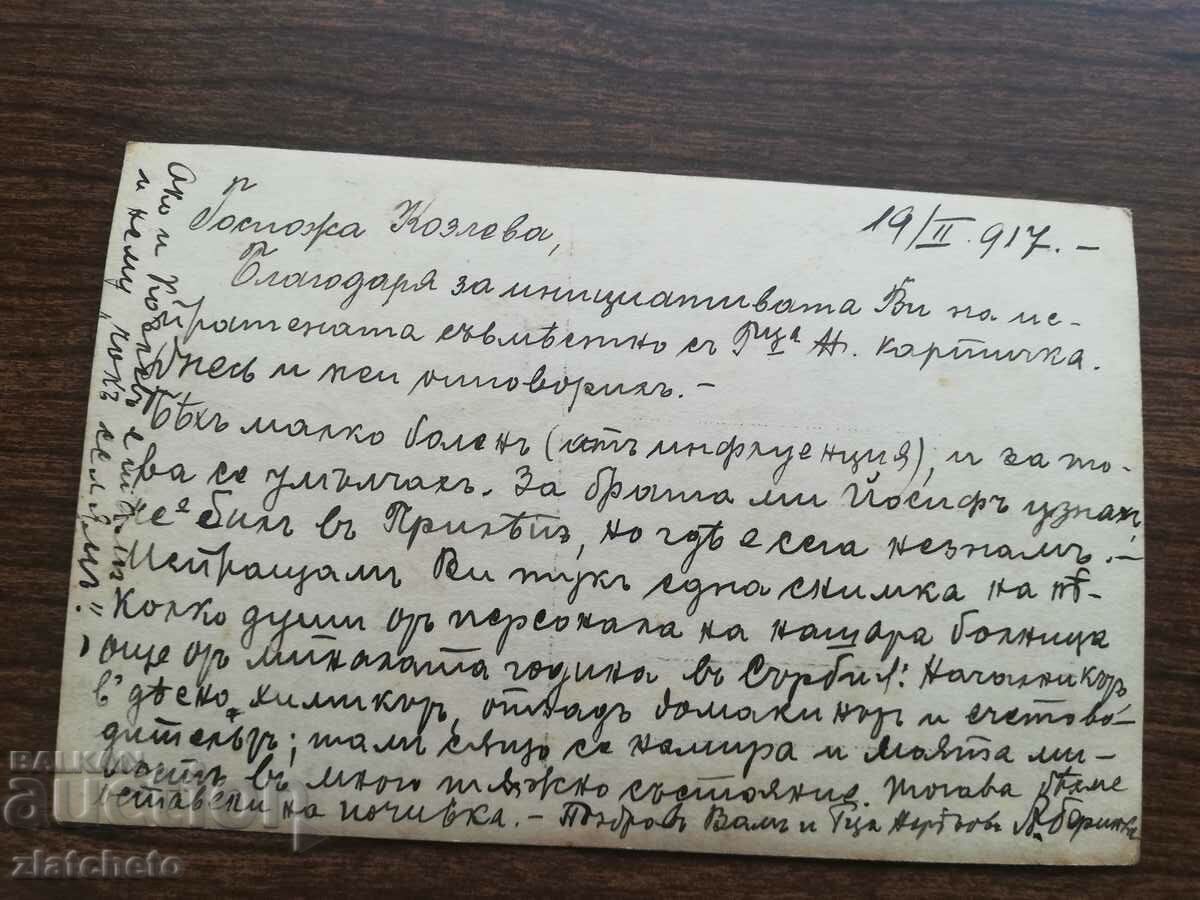 19/II.917.–
Госпожа Козлева,
Благодаря за инициативата Ви на из-
пратената съвмѣстно с Гца Н. картичка.
Днесь и ней отговорихъ.–
Бѣхъ малко боленъ (отъ инфлуенция), и за то-
ва се умълчахъ. За брата ми Йосифъ узнахъ,
че билъ въ Прилѣпъ, но гдѣ е сега незнамъ.–
Изпращамъ Ви тукъ една снимка на нѣ-
колко души отъ персонала на нашата болница
още отъ миналата година въ Сърбия: Началникътъ
въ дѣсно, химикътъ, отзадъ домакинътъ и счетово-
дительтъ; тамъ също се намира и моята ми-
лость въ много тяжко състояние. Тогава бѣхме
оставени на почивка.– Поздравъ Вамъ и Гца
Ако и
и нему
BALKAN
auction
zlatcheto